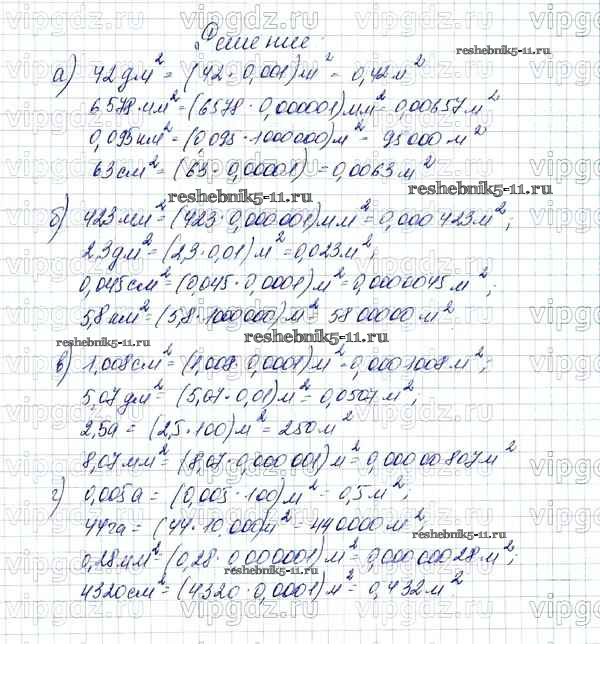 Решение
reshebnik5-11.ru
а) 42 дм² = (42 · 0,001) м² = 0,42 м²
6578 мм² = (6578 · 0,000001) мм² = 0,00657 м²
0,095 км² = (0,095 · 1000000) м² = 95000 м²
63 см² = (63 · 0,00001) = 0,0063 м²
reshebnik5-11.ru reshebnik5-11.ru
б) 423 мм² = (423 · 0,000001) мм² = 0,000423 м²;
2,3 дм² = (2,3 · 0,01) м² = 0,023 м²;
0,045 см² = (0,045 · 0,0001) м² = 0,0000045 м²;
5,8 км² = (5,8 · 1000000) м² = 5800000 м²
reshebnik5-11.ru reshebnik5-11.ru
в) 1,008 см² = (1,008 · 0,0001) м² = 0,0001008 м²;
5,07 дм² = (5,07 · 0,01) м² = 0,0507 м²;
2,5 а = (2,5 · 100) м² = 250 м²
8,07 мм² = (8,07 · 0,000001) м² = 0,00000807 м²
г) 0,005 а = (0,005 · 100) м² = 0,5 м²;
44 га = (44 · 10 000) м² = 440000 м²,
0,28 мм² = (0,28 · 0,000001) м² = 0,00000028 м²;
reshebnik5-11.ru reshebnik5-11.ru
4320 см² = (4320 · 0,0001) м² = 0,432 м²
vipgdz.ru